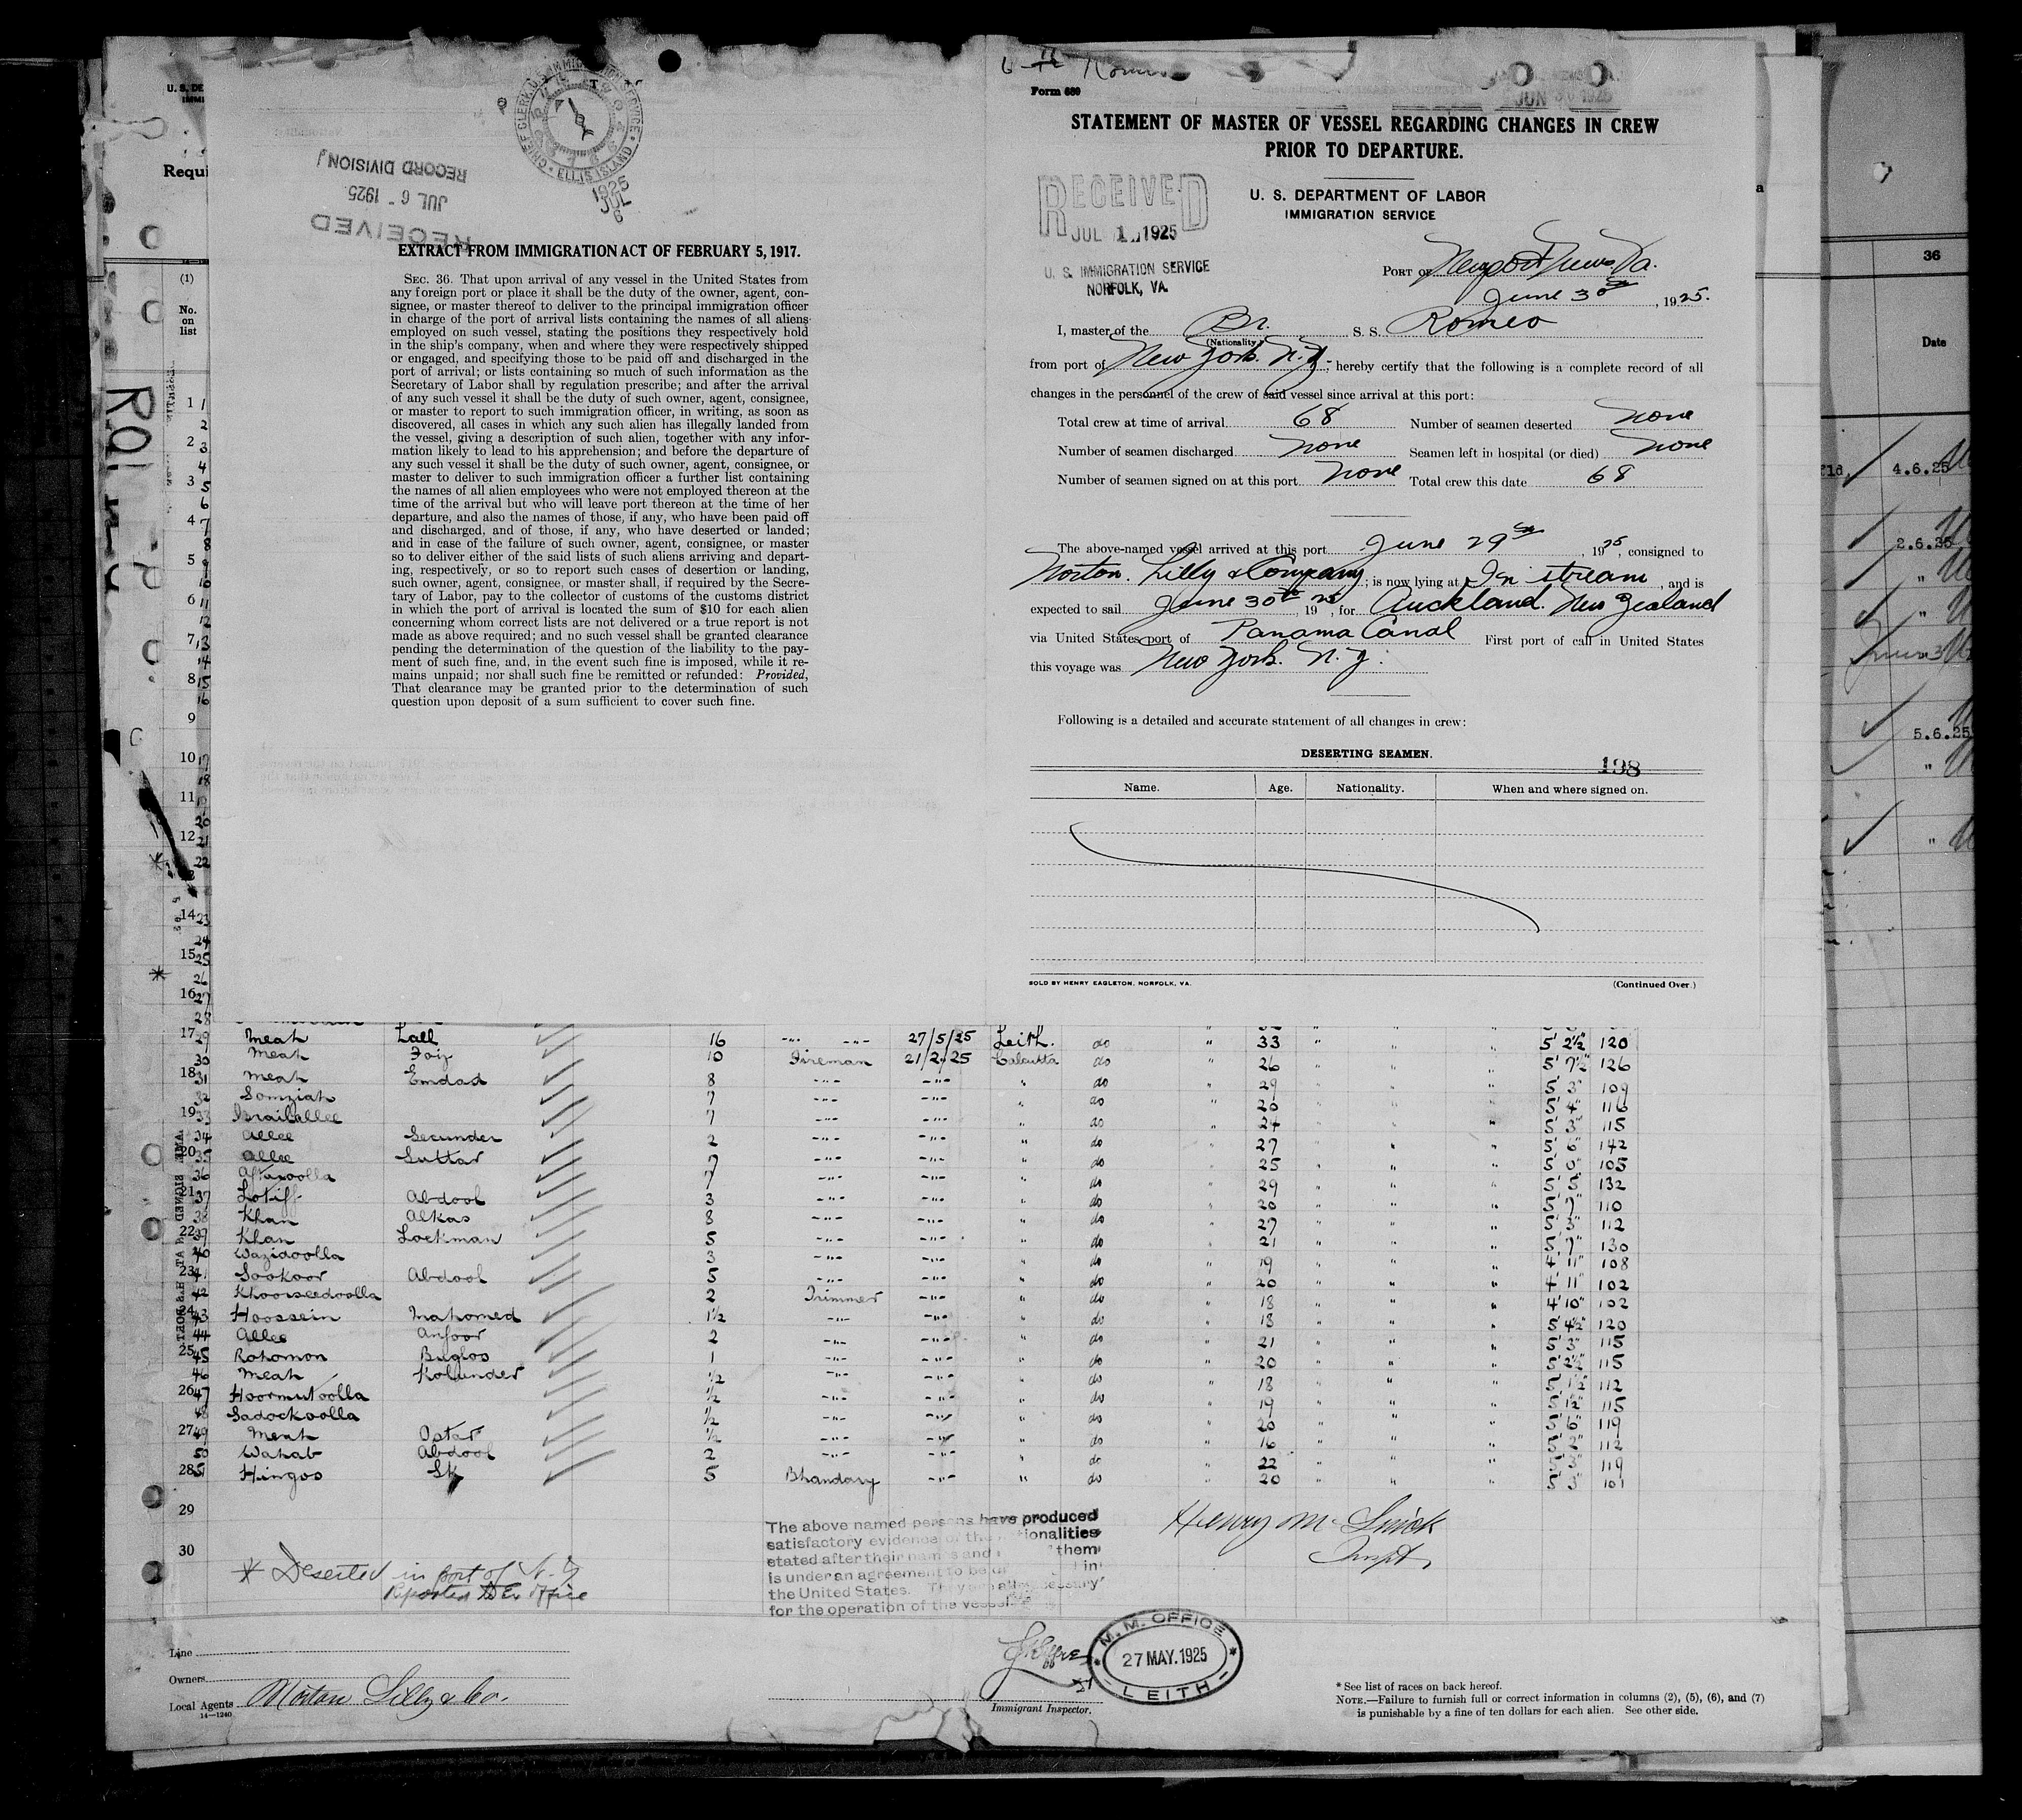 RECEIVED
JUL 6 - 1925
RECORD DIVISION
CHIEF CLERK, U.S. IMMIGRATION SERVICE
ELLIS ISLAND
1925
JUL
6
EXTRACT FROM IMMIGRATION ACT OF FEBRUARY 5, 1917.
SEC. 36. That upon arrival of any vessel in the United States from
any foreign port or place it shall be the duty of the owner, agent, con-
signee, or master thereof to deliver to the principal immigration officer
in charge of the port of arrival lists containing the names of all aliens
employed on such vessel, stating the positions they respectively hold
in the ship's company, when and where they were respectively shipped
or engaged, and specifying those to be paid off and discharged in the
port of arrival; or lists containing so much of such information as the
Secretary of Labor shall by regulation prescribe; and after the arrival
of any such vessel it shall be the duty of such owner, agent, consignee,
or master to report to such immigration officer, in writing, as soon as
discovered, all cases in which any such alien has illegally landed from
the vessel, giving a description of such alien, together with any infor-
mation likely to lead to his apprehension; and before the departure of
any such vessel it shall be the duty of such owner, agent, consignee, or
master to deliver to such immigration officer a further list containing
the names of all alien employees who were not employed thereon at the
time of the arrival but who will leave port thereon at the time of her
departure, and also the names of those, if any, who have been paid off
and discharged, and of those, if any, who have deserted or landed;
and in case of the failure of such owner, agent, consignee, or master
so to deliver either of the said lists of such aliens arriving and depart-
ing, respectively, or so to report such cases of desertion or landing,
such owner, agent, consignee, or master shall, if required by the Secre-
tary of Labor, pay to the collector of customs of the customs district
in which the port of arrival is located the sum of $10 for each alien
concerning whom correct lists are not delivered or a true report is not
made as above required; and no such vessel shall be granted clearance
pending the determination of the question of the liability to the pay-
ment of such fine, and, in the event such fine is imposed, while it re-
mains unpaid; nor shall such fine be remitted or refunded: Provided,
That clearance may be granted prior to the determination of such
question upon deposit of a sum sufficient to cover such fine.
Form 689
JUN 30 1925
STATEMENT OF MASTER OF VESSEL REGARDING CHANGES IN CREW
PRIOR TO DEPARTURE.
U. S. DEPARTMENT OF LABOR
IMMIGRATION SERVICE
RECEIVED
JUL 1 1925
U. S. IMMIGRATION SERVICE
NORFOLK, VA.
PORT OF Newport News Va.
June 30th, 1925.
I, master of the Br. S. S. Romeo
(Nationality)
from port of New York. N.Y., hereby certify that the following is a complete record of all
changes in the personnel of the crew of said vessel since arrival at this port:
Total crew at time of arrival 68 Number of seamen deserted none
Number of seamen discharged none Seamen left in hospital (or died) none
Number of seamen signed on at this port none Total crew this date 68
The above-named vessel arrived at this port June 29th, 1925, consigned to
Norton. Lilly & Company; is now lying at In stream, and is
expected to sail June 30th 1925, for Auckland. New Zealand
via United States port of Panama Canal First port of call in United States
this voyage was New York. N.Y.
Following is a detailed and accurate statement of all changes in crew:
DESERTING SEAMEN.
198
Name. Age. Nationality. When and where signed on.
SOLD BY HENRY EAGLETON, NORFOLK, VA. (Continued Over.)
Requi
(1)
No.
on
list
36
Date
4.6.25
2.6.25
5.6.25
29 Meah Lall 16 -"- -"- 27/5/25 Leith. do " 33 " " " 5' 2½" 120
30 Meah Foiz 10 Fireman 21/2/25 Calcutta do " 26 " " " 5' 7½" 126
31 Meah Emdad 8 -"- -"- " do 29 " " " 5' 3" 109
32 Somziah 7 -"- -"- " do " 20 " " " 5' 4" 116
33 Israilallee 7 -"- -"- " do 24 " " " 5' 3" 115
34 Allee Secunder 2 -"- -"- " do 27 " " " 5' 6" 142
35 Allee Suttar 7 -"- -"- " do 25 " " " 5' 0" 105
36 Aftaroolla 7 -"- -"- " do 29 " " " 5' 5" 132
37 Lotiff Abdool 3 -"- -"- " do 20 " " " 5' 7" 110
38 Khan Alkas 8 -"- -"- " do 27 " " " 5' 3" 112
39 Khan Lockman 5 -"- -"- " do 21 " " " 5' 7" 130
40 Wazidoolla 3 -"- -"- " do 19 " " " 4' 11" 108
41 Sookoor Abdool 5 -"- -"- " do 20 " " " 4' 11" 102
42 Khoorseedoolla 2 Trimmer -"- " do " 18 " " " 4' 10" 102
43 Hoossein Mahomed 1½ -"- -"- " do " 18 " " " 5' 4½" 120
44 Allee Anfoor 2 -"- -"- " do " 21 " " " 5' 3" 115
45 Rohomon Bugloo 1 -"- -"- " do " 20 " " " 5' 2½" 115
46 Meah Kolunder ½ -"- -"- " do " 18 " " " 5' 1½" 112
47 Hoormutoolla ½ -"- -"- " do " 19 " " " 5' 1½" 115
48 Sadockoolla ½ -"- -"- " do " 20 " " " 5' 6" 119
49 Meah Ostar ½ -"- -"- " do " 16 " " " 5' 2" 112
50 Wahab Abdool 2 -"- -"- " do " 22 " " " 5' 3" 119
51 Hingoo Sk 5 Bhandary -"- " do " 20 " " " 5' 3" 101
29
30
The above named persons have produced
satisfactory evidence of the nationalities
stated after their names and them
is under an agreement to be in
the United States. They are all necessary
for the operation of the vessel.
Henry M.
Inspt.
* Deserted in port of N.Y
Reported office
Line
Owners
Local Agents Norton Lilly & Co.
14—1240
Immigrant Inspector.
M. M. OFFICE
27 MAY. 1925
LEITH
* See list of races on back hereof.
NOTE.—Failure to furnish full or correct information in columns (2), (5), (6), and (7)
is punishable by a fine of ten dollars for each alien. See other side.